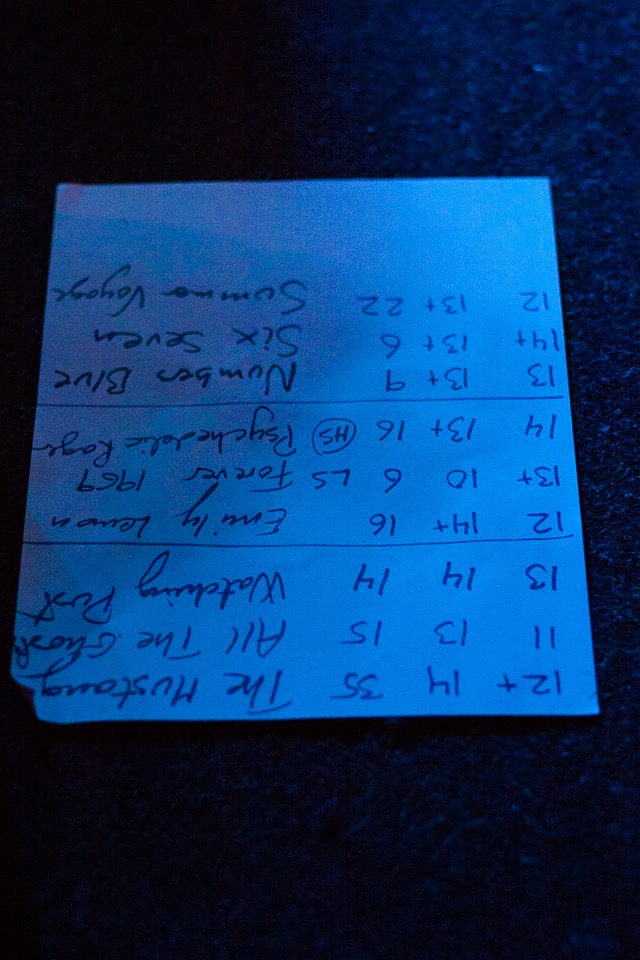 12+ 14 35 The Mustang
11 13 15 All The Ghosts
13 14 14 Watching
12 14+ 16 Emily Lemon
13+ 10 6 LS Forever 1969
14 13+ 16 (HS) Psychedelic
13 13+ 9 Numbers Blue
14+ 13+ 6 Six Seven
12 13+ 22 Summer Voyage